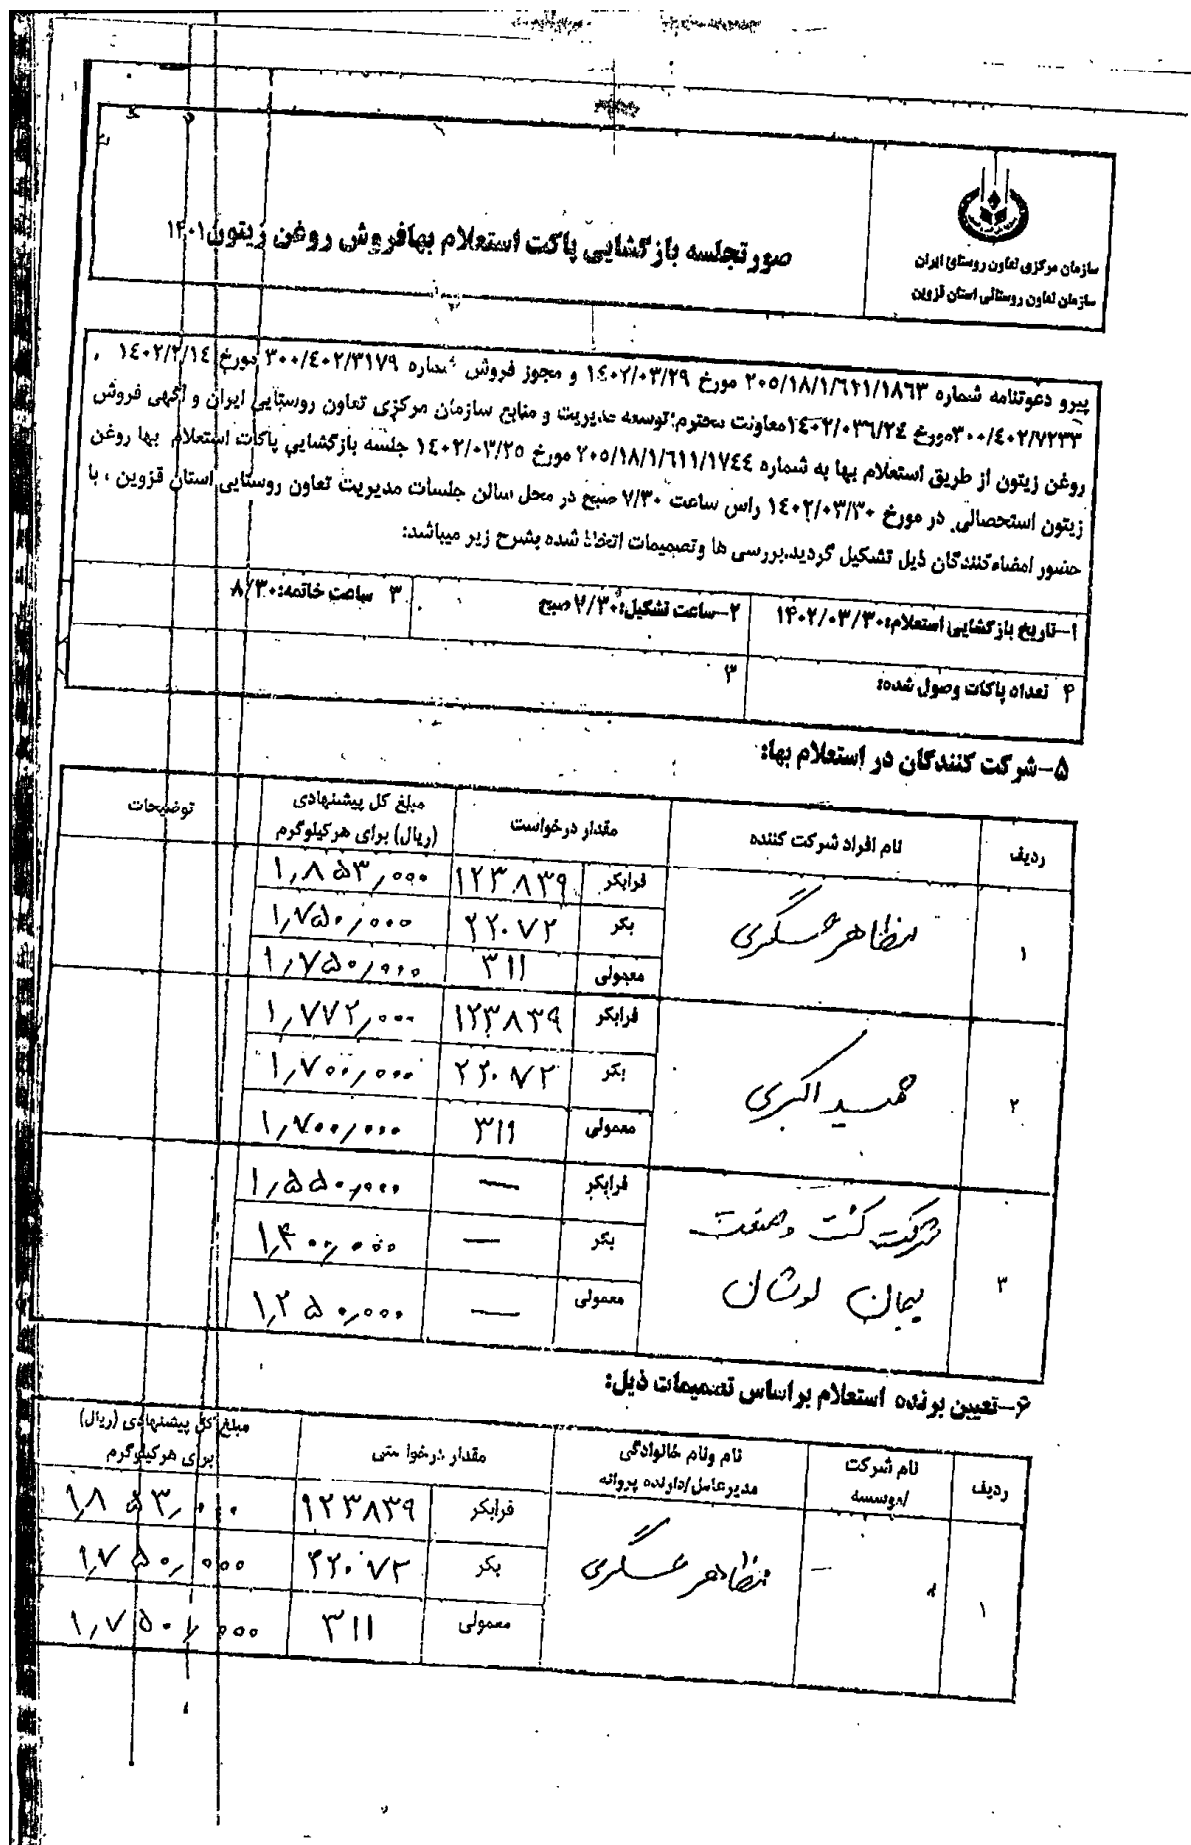 سازمان مرکزی تعاون روستائی ایران
سازمان تعاون روستائی استان قزوین
صورتجلسه بازگشایی پاکت استعلام بهافروش روغن زیتون۱۴۰۱
پیرو دعوتنامه شماره ۲۰۵/۱۸/۱/٦۲۱/۱۸٦۳ مورخ ۱٤۰۲/۰۳/۲۹ و مجوز فروش شماره ۳۰۰/٤۰۲/۳۱۷۹ مورخ ۱٤۰۲/۲/۱٤
۳۰۰/٤۰۲/۷۲۳۳مورخ ۱٤۰۲/۰۳٦/۲٤معاونت محترم توسعه مدیریت و منابع سازمان مرکزی تعاون روستایی ایران و آگهی فروش
روغن زیتون از طریق استعلام بها به شماره ۲۰۵/۱۸/۱/٦۱۱/۱۷٤٤ مورخ ۱٤۰۲/۰۳/۲۵ جلسه بازگشایی پاکات استعلام بها روغن
زیتون استحصالی در مورخ ۱٤۰۲/۰۳/۳۰ راس ساعت ۷/۳۰ صبح در محل سالن جلسات مدیریت تعاون روستایی استان قزوین ، با
حضور امضاءکنندگان ذیل تشکیل گردید.بررسی ها وتصمیمات اتخاذ شده بشرح زیر میباشد:
۱-تاریخ بازگشایی استعلام:۱۴۰۲/۰۳/۳۰ ۲-ساعت تشکیل:۷/۳۰ صبح ۳ ساعت خاتمه:۸/۳۰
۴ تعداد پاکات وصول شده: ۳
۵-شرکت کنندگان در استعلام بها:
ردیف نام افراد شرکت کننده مقدار درخواست مبلغ کل پیشنهادی (ریال) برای هرکیلوگرم توضیحات
۱ مظاهر عسگری فرابکر ۱۲۳۸۳۹ ۱,۸۵۳,۰۰۰
بکر ۲۲۰۷۲ ۱,۷۵۰,۰۰۰
معمولی ۳۱۱ ۱,۷۵۰,۰۰۰
۲ اکبری فرابکر ۱۲۳۸۳۹ ۱,۷۷۲,۰۰۰
بکر ۲۲۰۷۲ ۱,۷۰۰,۰۰۰
معمولی ۳۱۱ ۱,۷۰۰,۰۰۰
۳ شرکت کشت و صنعت فرابکر — ۱,۵۵۰,۰۰۰
بکر — ۱,۴۰۰,۰۰۰
پیمان لوشان معمولی — ۱,۲۵۰,۰۰۰
۶-تعیین برنده استعلام براساس تصمیمات ذیل:
ردیف نام شرکت /موسسه نام ونام خانوادگی مدیرعامل/دارنده پروانه مقدار درخواستی مبلغ کل پیشنهادی (ریال) برای هرکیلوگرم
۱ — مظاهر عسگری فرابکر ۱۲۳۸۳۹ ۱,۸۵۳,۰۰۰
بکر ۲۲۰۷۲ ۱,۷۵۰,۰۰۰
معمولی ۳۱۱ ۱,۷۵۰,۰۰۰